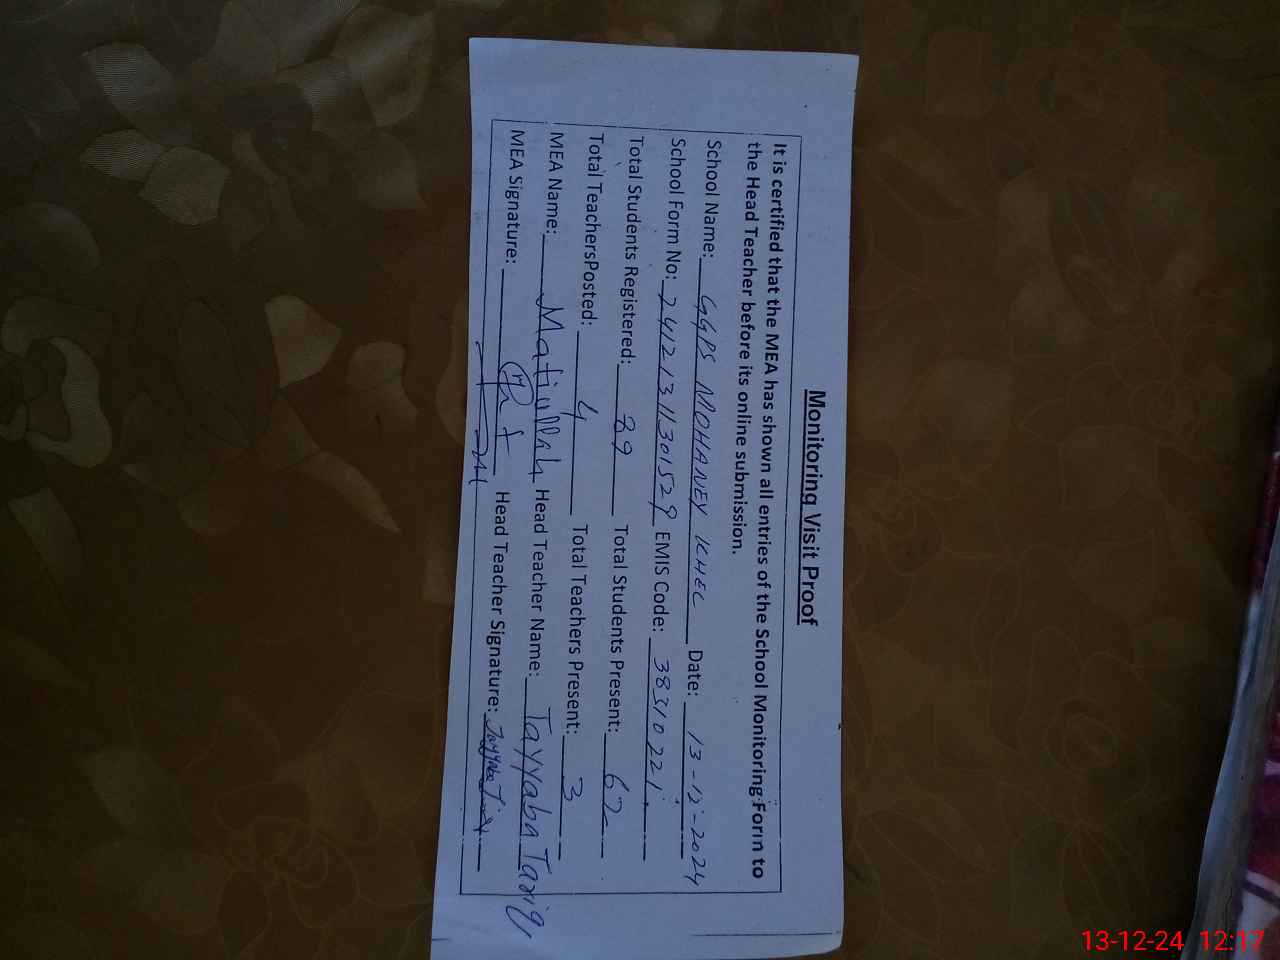 Monitoring Visit Proof
It is certified that the MEA has shown all entries of the School Monitoring Form to
the Head Teacher before its online submission.
School Name: GGPS MOHANEY KHEL Date: 13-12-2024
School Form No: 24121311301529 EMIS Code: 38310221
Total Students Registered: 89 Total Students Present: 62
Total TeachersPosted: 4 Total Teachers Present: 3
MEA Name: Matiullah Head Teacher Name: Tayyaba Tariq
MEA Signature: Head Teacher Signature: Tayyaba Tariq
13-12-24 12:17